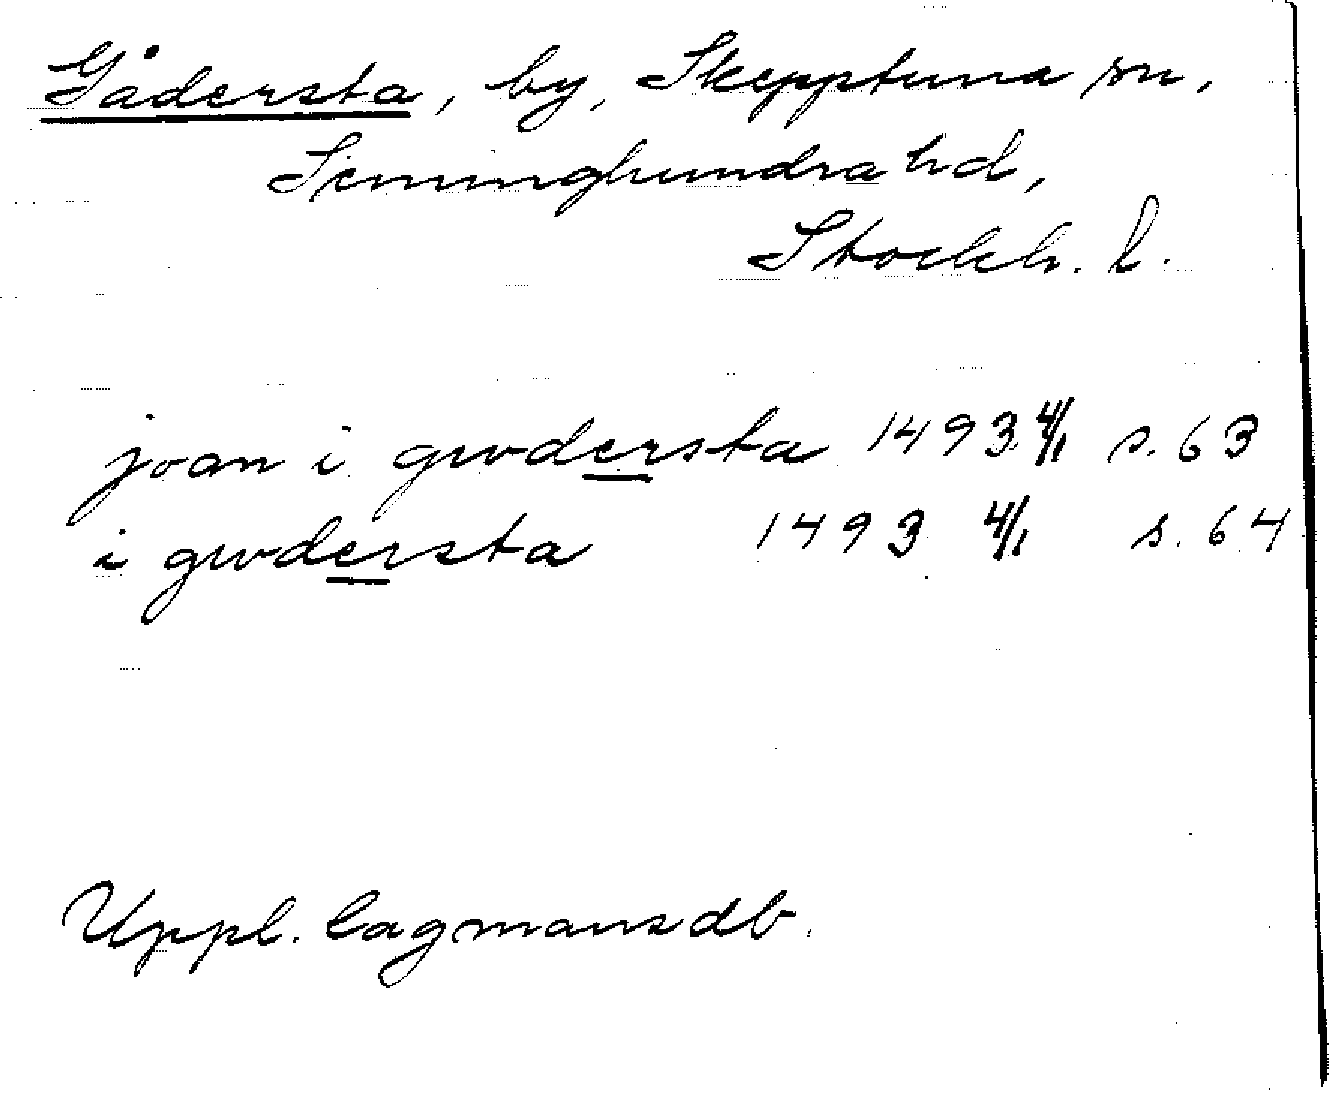 Gådersta, by, Skepptuna sn,
Seminghundra hd,
Stockh. l.
joan i gwdersta 1493 4/1 s. 63
i gwdersta 1493 4/1 s. 64
Uppl. lagmansdb.